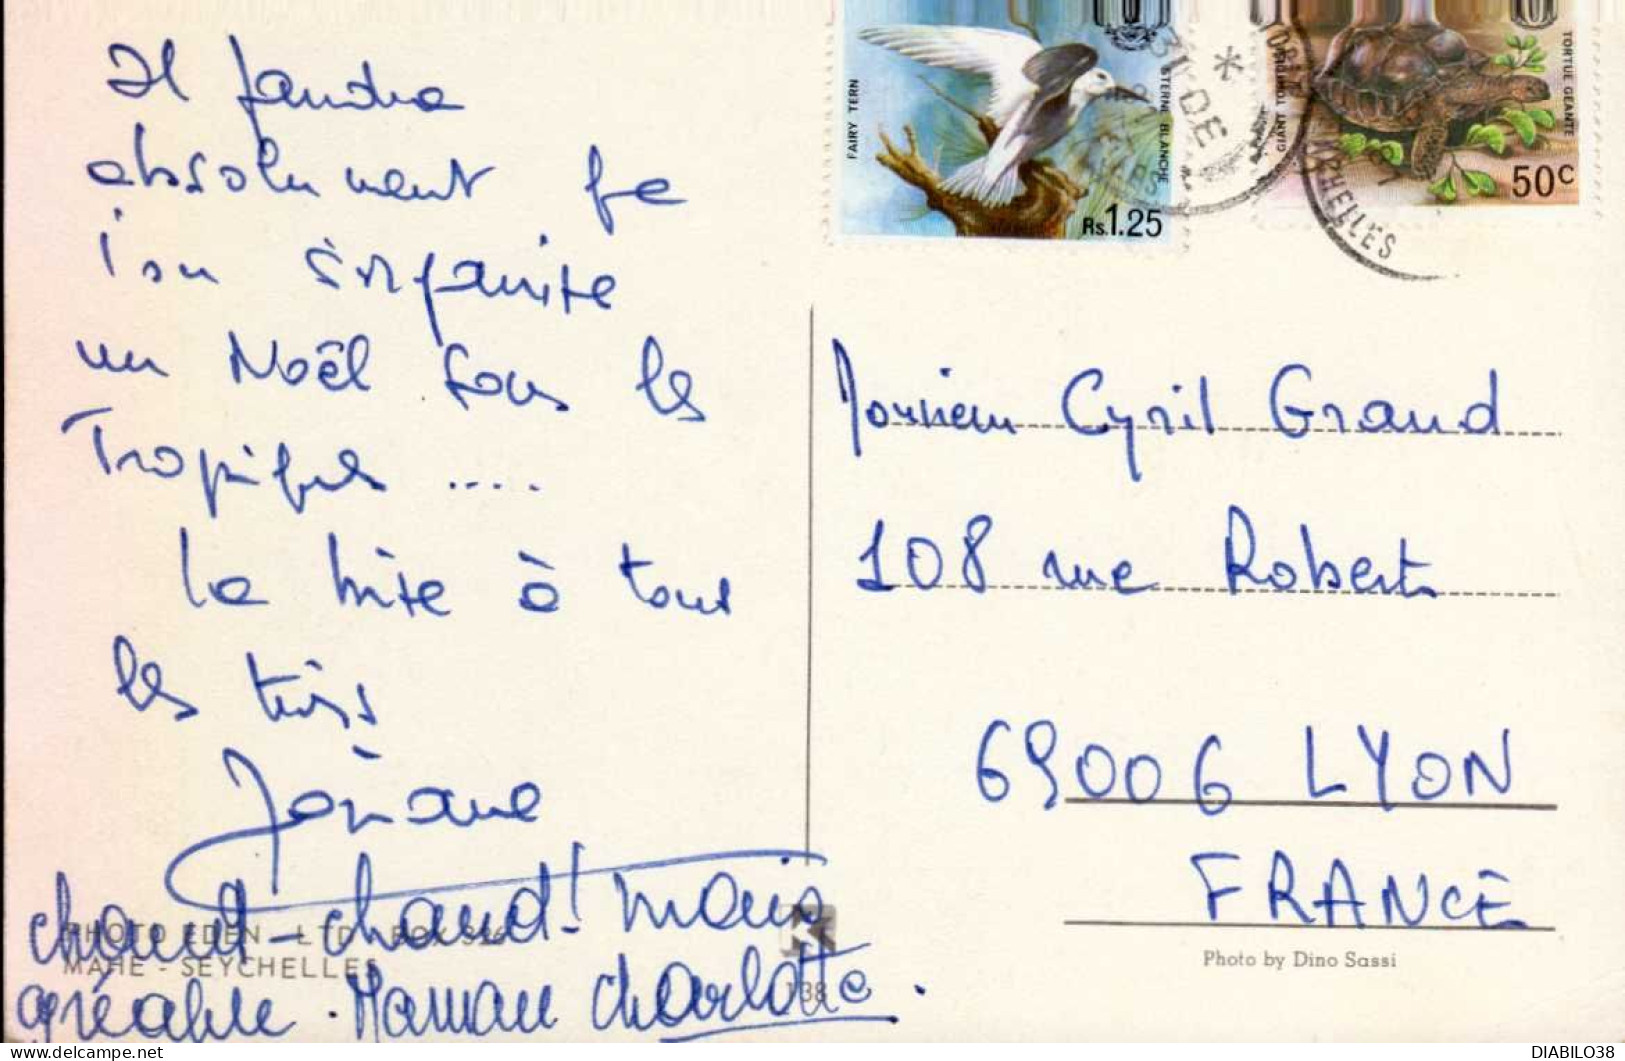 Il faudra
absolument que
l'on s'organise
un Noël sous les
Tropiques ....
La bise à tous
les trois
chaud-chaud! mais
agréable. Maman Charlotte.
PHOTO EDEN LTD BOX
MAHE - SEYCHELLES
138
FAIRY TERN
STERNE BLANCHE
Rs.1.25
31 DE
GIANT TORTOISE
TORTUE GEANTE
50c
SEYCHELLES
Monsieur Cyril Grand
108 rue Robert
69006 LYON
FRANCE
Photo by Dino Sassi
delcampe.net
DIABILO38